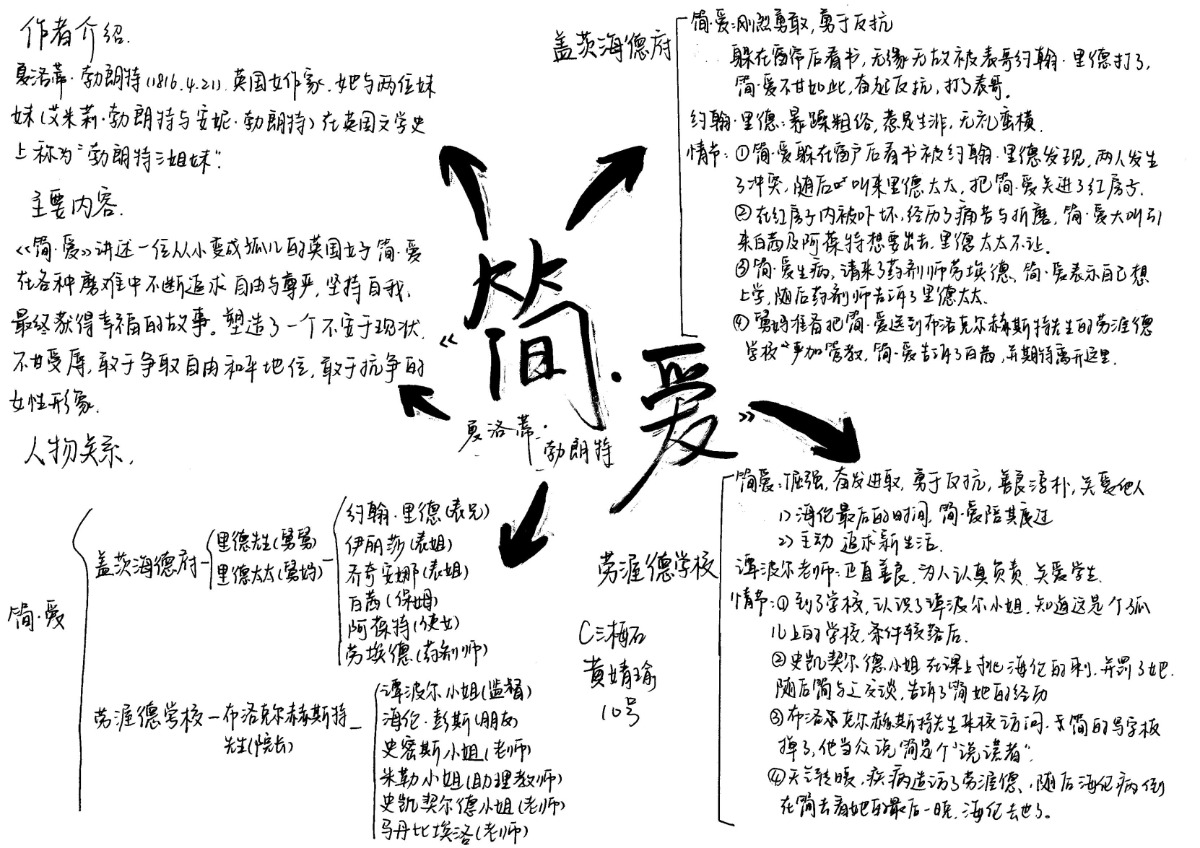 作者介绍.
夏洛蒂·勃朗特(1816.4.21).英国女作家.她与两位妹
妹(艾米莉·勃朗特与安妮·勃朗特)在英国文学史
上称为“勃朗特三姐妹”.
主要内容.
《简·爱》讲述一位从小变成孤儿的英国女子简·爱
在各种磨难中不断追求自由与尊严,坚持自我,
最终获得幸福的故事。塑造了一个不安于现状,
不甘受辱,敢于争取自由和平地位,敢于抗争的
女性形象.
人物关系,
简·爱
盖茨海德府
里德先生(舅舅)
里德太太(舅妈)
约翰·里德(表兄)
伊丽莎(表姐)
乔奇安娜(表姐)
白茜(保姆)
阿葆特(使女)
劳埃德(药剂师)
劳渥德学校-布洛克尔赫斯特
先生(院长)
谭波尔小姐(监督)
海伦·彭斯(朋友)
史密斯小姐(老师)
朱勒小姐(助理教师)
史凯契尔德小姐(老师)
马丹比埃洛(老师)
《简·爱》
夏洛蒂·勃朗特
盖茨海德府
简·爱:刚烈勇敢,勇于反抗
躲在窗帘后看书,无缘无故被表哥约翰·里德打了,
简·爱不甘如此,奋起反抗,打了表哥。
约翰·里德:暴躁粗俗,惹是生非,无礼蛮横.
情节:①简·爱躲在窗户后看书被约翰·里德发现,两人发生
了冲突,随后叫来里德太太,把简·爱关进了红房子.
②在红房子内被吓坏,经历了痛苦与折磨,简·爱大叫引
来白茜及阿葆特想要出去,里德太太不让.
③简·爱生病,请来了药剂师劳埃德、简·爱表示自己想
上学,随后药剂师告诉了里德太太.
④舅妈准备把简·爱送到布洛克尔赫斯特先生的劳渥德
学校“严加管教,简·爱告诉了白茜,并期待离开这里.
劳渥德学校
C三梅石
黄婧瑜
10号
简爱:倔强,奋发进取,勇于反抗,善良淳朴,关爱他人
1)海伦最后的时间,简·爱陪其度过
2)主动追求新生活.
谭波尔老师:正直善良,为人认真负责,关爱学生.
情节:①到了学校,认识了谭波尔小姐,知道这是个孤
儿上的学校,条件较落后.
②史凯契尔德小姐在课上挑海伦的刺,并罚了她.
随后简与之交谈,告诉了简她的经历
③布洛克尔赫斯特先生来校访问.简的写字板
掉了,他当众说简是个“说谎者”.
④天气转暖,疾病造访了劳渥德、随后海伦病倒
在简去看她的最后一晚,海伦去世了。